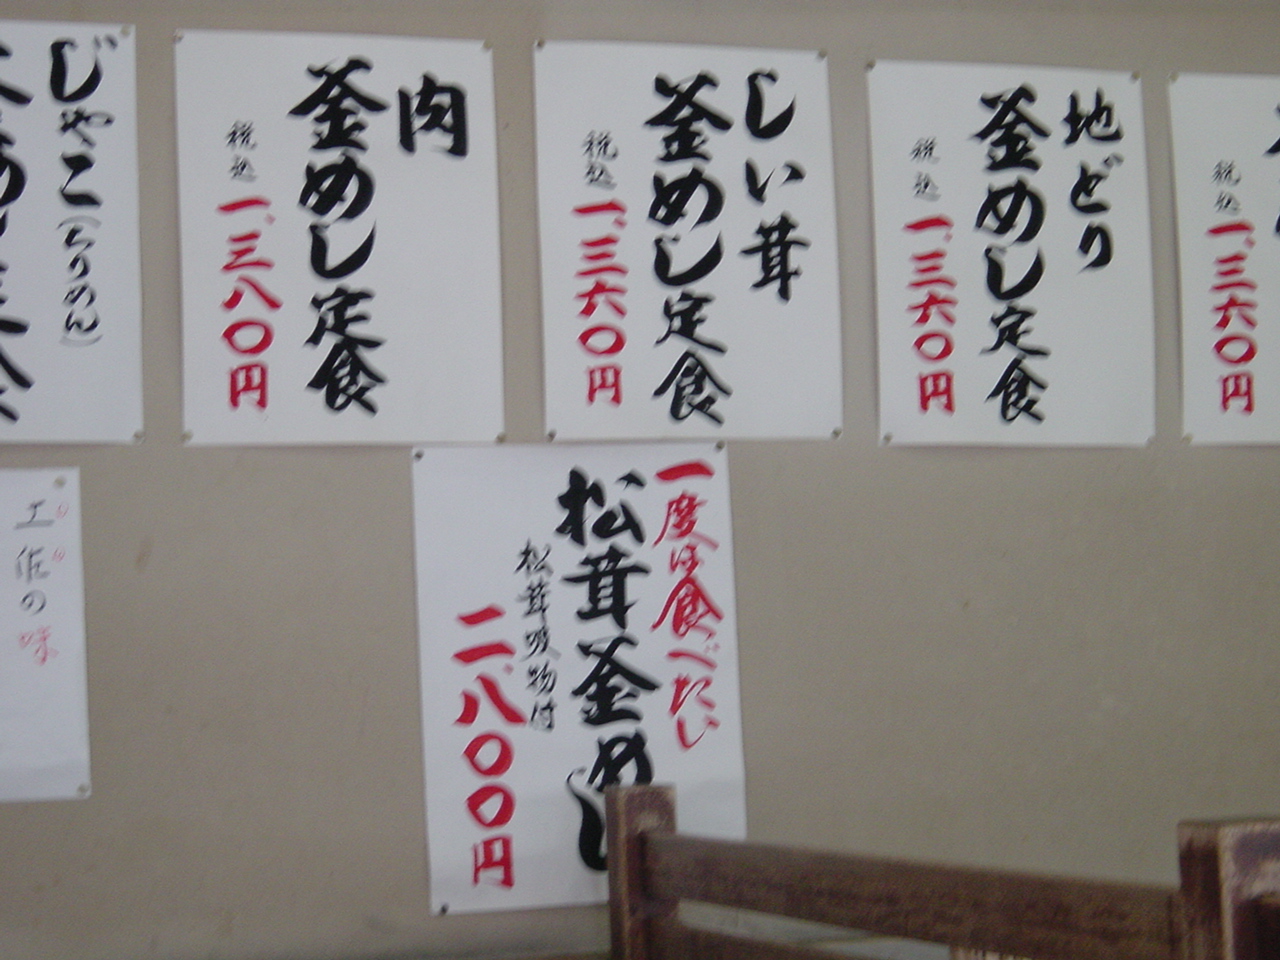 地どり
釜めし定食
税込
一、三六〇円
しい茸
釜めし定食
税込
一、三六〇円
肉
釜めし定食
税込
一、三八〇円
じゃこ(ちりめん)
税込
一、三六〇円
一度は食べたい
松茸釜めし
松茸吸物付
二、八〇〇円
の味